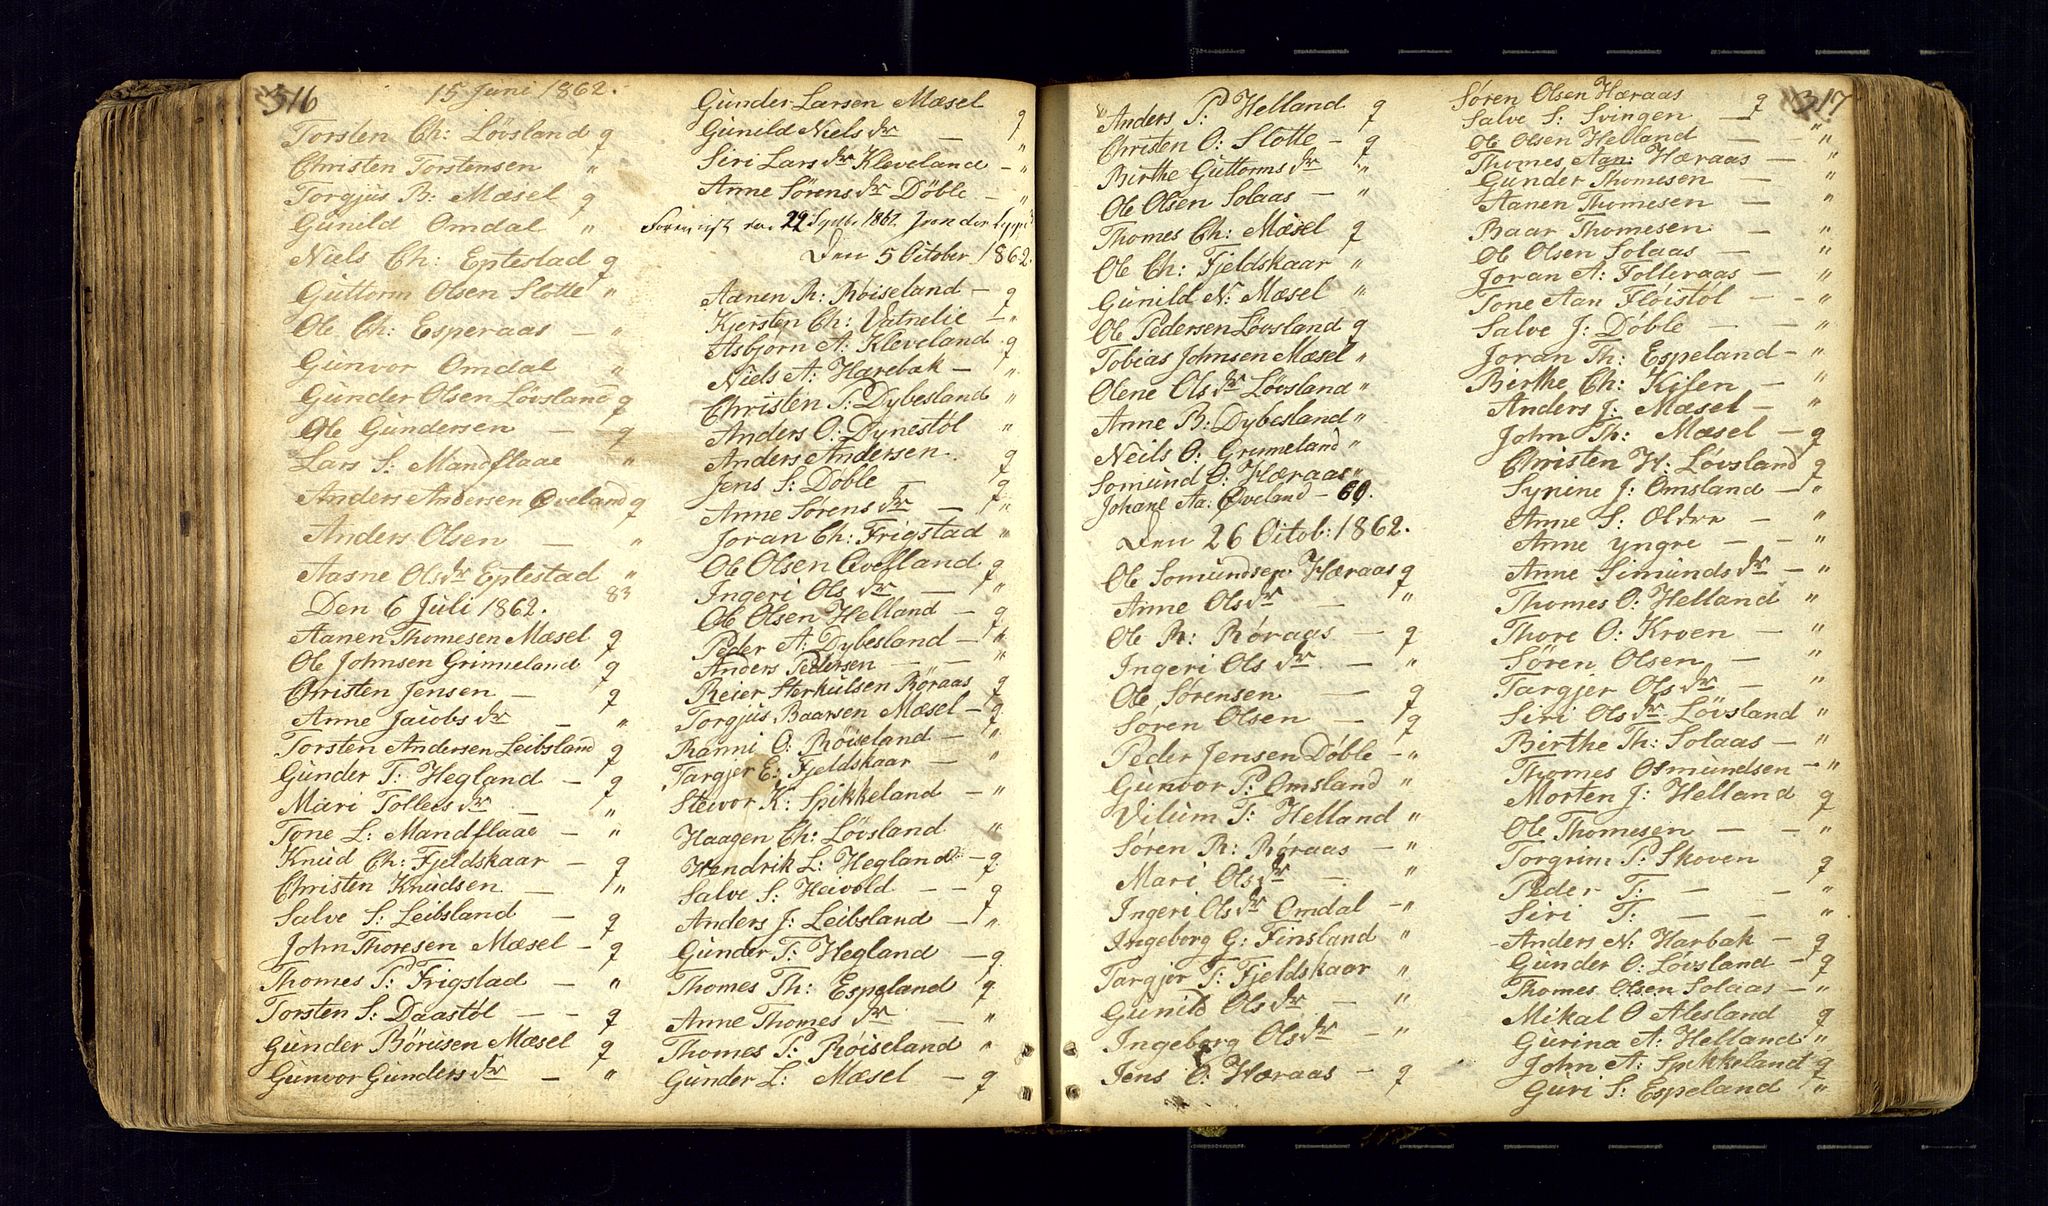 316
15 Juni 1862.
Torsten Ch: Løvsland g
Christen Torstensen "
Torgjus B: Mæsel g
Gunild Omdal "
Niels Ch: Eptestad g
Guttorm Olsen Slotte "
Ole Ch: Esperaas — "
Gunvor Omdal "
Gunder Olsen Løvsland g
Ole Gundersen — g
Lars S: Mandflaae "
Anders Andersen Øveland g
Anders Olsen — "
Aasne Ols dr Eptestad "
83
Den 6 Juli 1862.
Aanen Thomesen Mæsel g
Ole Johnsen Grinneland g
Christen Jensen — g
Anne Jacobs dr — "
Torsten Andersen Leibsland g
Gunder T: Hegland — g
Mari Tollefs dr — "
Tone L: Mandflaae — "
Knud Ch: Fjeldskaar — g
Christen Knudsen — "
Salve S: Leibsland — g
John Thoresen Mæsel — g
Thomes P: Frigstad — "
Torsten S: Daastøl — – g
Gunder Børusen Mæsel g
Gunvor Gunders dr — "
Gunder Larsen Mæsel g
Gunild Niels dr — "
Siri Lars dr Kleveland — "
Anne Sørens dr Døble — "
29 1862.
Den 5 October 1862.
Aanen R: Røiseland — g
Kjersten Ch: Vatnelie — "
Asbjørn A: Kleveland g
Niels A: Harebak — "
Christen P: Dybesland "
Anders O: Dynestøl "
Anders Andersen g
Jens S: Døble — g
Anne Sørens dr — "
Joran Ch: Frigstad "
Ole Olsen Øvefland g
Ingeri Ols dr — "
Ole Olsen Helland — g
Peder A: Dybesland — "
Anders Pedersen — — "
Reier Sterkulsen Røraas g
Torgjus Baarsen Mæsel — g
Ranni O: Røiseland — "
Targjer E: Fjeldskaar — "
Steivor K: Spikkeland — "
Haagen Ch: Løvsland "
Hendrik L: Hegland — g
Salve S: Havold — – g
Anders J: Leibsland — "
Gunder T: Hegland — g
Thomes Th: Espeland g
Anne Thomes dr — "
Thomes P: Røiseland "
Gunder L: Mæsel — g
Anders P: Helland g
Christen O: Slotte — g
Birthe Guttorms dr "
Ole Olsen Solaas — "
Thomes Ch: Mæsel g
Ole Ch: Fjeldskaar "
Gunild N: Mæsel "
Ole Pedersen Løvsland g
Tobias Johnsen Mæsel "
Olene Ols dr Løvsland "
Anne B: Dybesland "
Neils O: Grinneland "
Somund O: Hæraas "
Johane Aa: Øveland — 60.
Den 26 Octob: 1862.
Ole Somundsen Hæraas g
Anne Ols dr — "
Ole R: Røraas — g
Ingeri Ols dr — "
Ole Sørensen — g
Søren Olsen — g
Peder Jensen Døble — "
Gunvor P: Omsland "
Vilum T: Helland "
Søren R: Røraas — "
Mari Ols dr — "
Ingeri Ols dr Omdal — "
Ingeborg G: Finsland "
Targjer T: Fjeldskaar "
Gunild Ols dr — "
Ingeborg Ols dr — "
Jens O: Hæraas — g
317
Søren Olsen Hæraas g
Salve S: Svingen — "
Ole Olsen Helland — — "
Thomes Aan: Hæraas — "
Gunder Thomesen — "
Aanen Thomesen — "
Baar Thomesen — "
Ole Olsen Solaas — "
Joran A: Folleraas — "
Tone Aan Fløistøl — – "
Salve J: Døble — — "
Joran Th: Espeland — "
Birthe Ch: Kisen — "
Anders J: Mæsel — "
John Th: Mæsel — g
Christen W: Løvsland g
Synine J: Omsland — "
Anne S: Ældre — "
Anne yngre — — "
Anne Simunds dr — "
Thomes O: Helland "
Thore O: Kroen — "
Søren Olsen — "
Targjer Ols dr — "
Siri Ols dr Løvsland "
Birthe Th: Solaas — "
Thomes Osmundsen — "
Morten J: Helland g
Ole Thomesen — — "
Torgrim P: Skoven g
Peder T: — — "
Siri T: — — "
Anders N: Harbak — g
Gunder O: Løvsland — g
Thomes Olsen Solaas — "
Mikal O Alesland g
Gurina A: Helland "
John A: Spikkeland g
Guri S: Espeland "